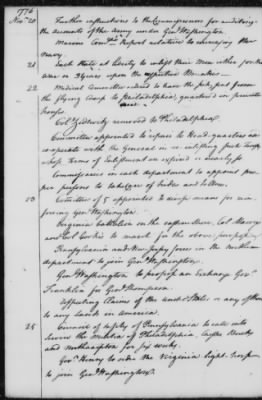 1776
Nov. 20 Further instructions to the Commissioners for auditing
the accounts of the Army under Gen. Washington.
Marine Comttee Report relative to increasing the
navy.
21 Each State at liberty to inlist their Men either for the
war or 3 years upon the respective Bounties.
22 Medical Committee ordered to have the sick sent from
the flying Camp to Philadelphia, quartered in private
houses.
Col. removed to Philadelphia
Committee appointed to repair to Head-quarters to co-
operate with the General in re-inlisting such troops
whose terms of Enlistment are expired or nearly so
Commissaries in each department to appoint pro-
per persons to take care of hides and tallow.
23 Comittee of 5 appointed to devise means for rein-
forcing Gen. Washington.
Virginia battalion on the eastern shore, Col.
and to march for the above purpose,
Pennsylvania and New Jersey forces in the northern
department to join Gen. Washington.
Gen. Washington to propose an Exchange Gov.
Franklin for Gen. Thompson.
Claims of the United States or any of them
to any Lands in America.
25 Council of safety of Pennsylvania to call into
service the Militia of Philadelphia, Chester Bucks
and Northampton for six weeks.
Gov. Henry to order the Virginia light horse
to join Gen. Washington.